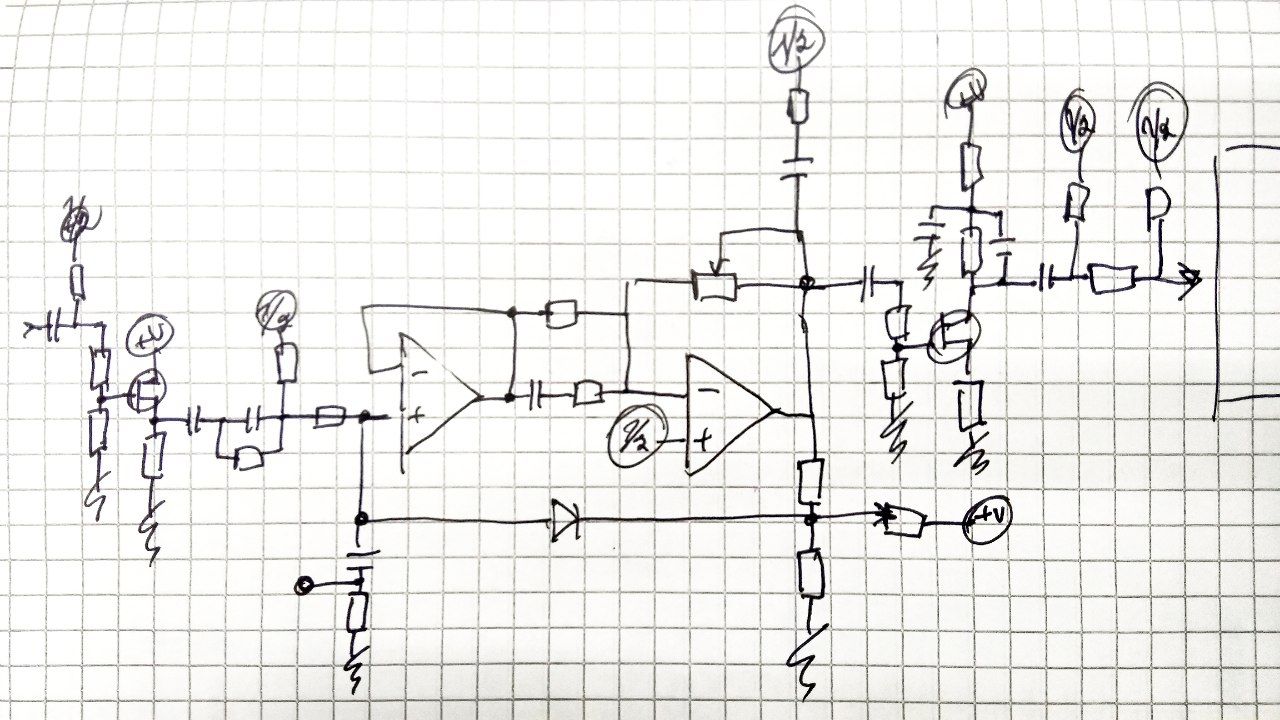 V/2
+V
V/2
-
+
V/2
-
+
V/2
+V
V/2
V/2
+V